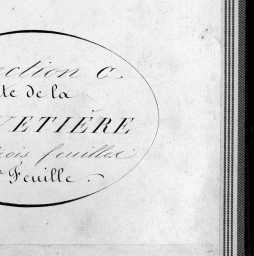 ection C.
ite de la
VETIÈRE
rois feuilles
e Feuille.